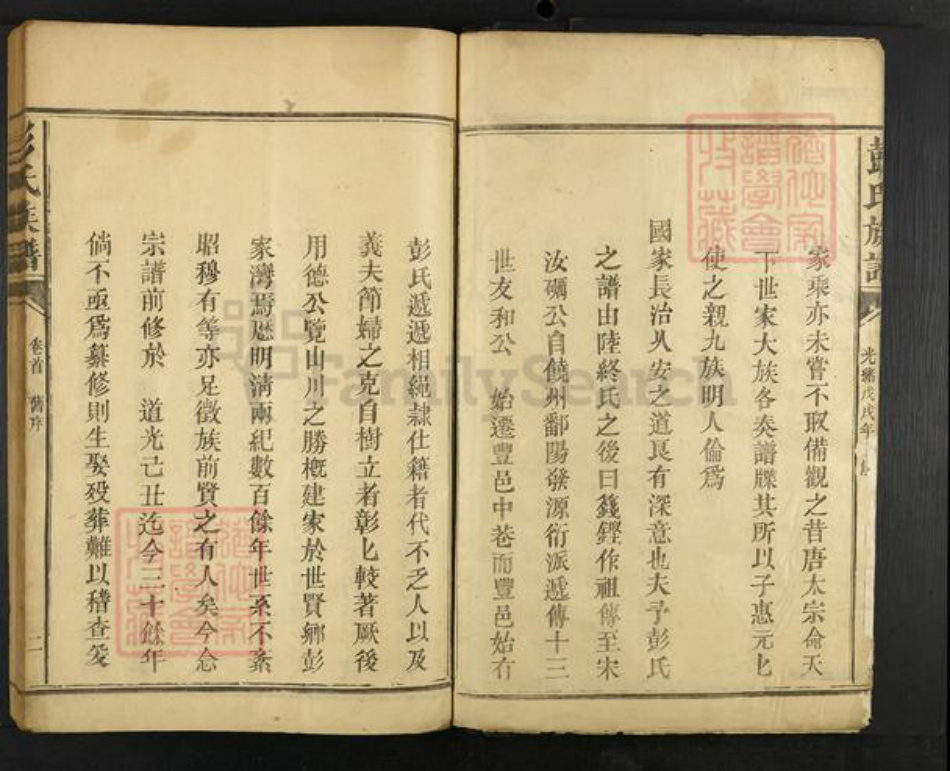 彭氏族譜
光緒戊戌年
家乘亦未嘗不取備觀之昔唐太宗命天
下世家大族各奏譜牒其所以子惠元匕
使之親九族明人倫爲
國家長治乆安之道良有深意也夫予彭氏
之譜由陸終氏之後曰籛鏗作祖傳至宋
汝礪公自饒州鄱陽發源衍派遞傳十三
世友和公 始遷豐邑中巷而豐邑始有
彭氏遞遞相繩隷仕籍者代不乏人以及
義夫節婦之克自樹立者彰匕較著厥後
用德公覽山川之勝概建家於世賢鄉彭
家灣焉歴明清兩紀數百餘年世系不紊
昭穆有等亦足徵族前賢之有人矣今念
宗譜前修於 道光己丑迄今三十餘年
倘不亟爲纂修則生娶殁葬難以稽查爰
彭氏族譜
卷首 舊序
二
FamilySearch